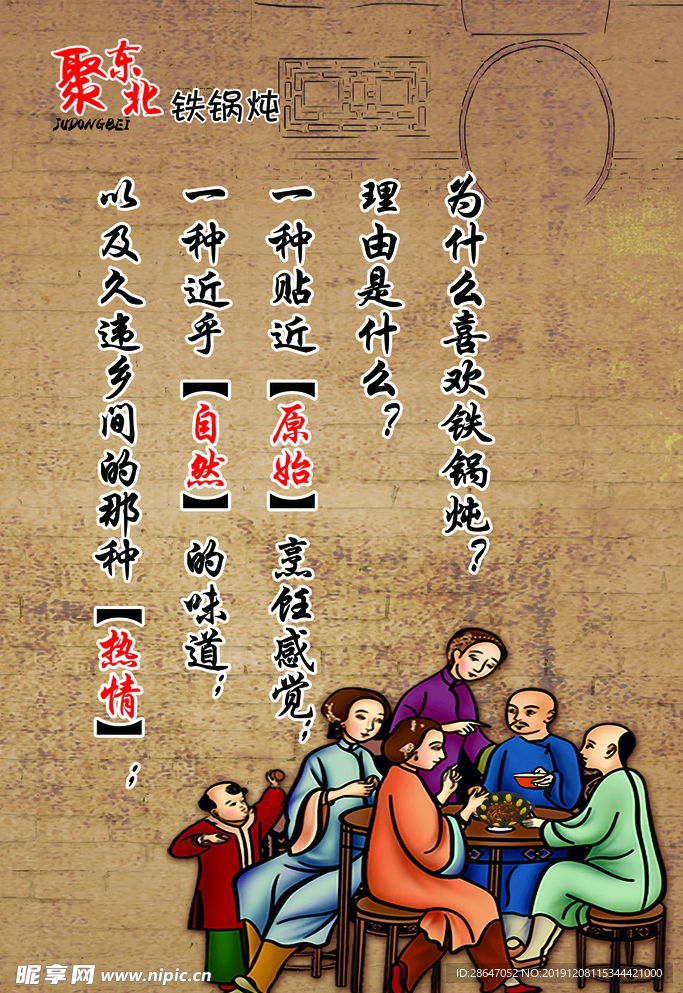 聚东北
JUDONGBEI
铁锅炖
为什么喜欢铁锅炖？
理由是什么？
一种贴近【原始】烹饪感觉；
一种近乎【自然】的味道；
以及久违乡间的那种【热情】；
昵享网 www.nipic.cn
ID:28647052 NO:20191208115344421000